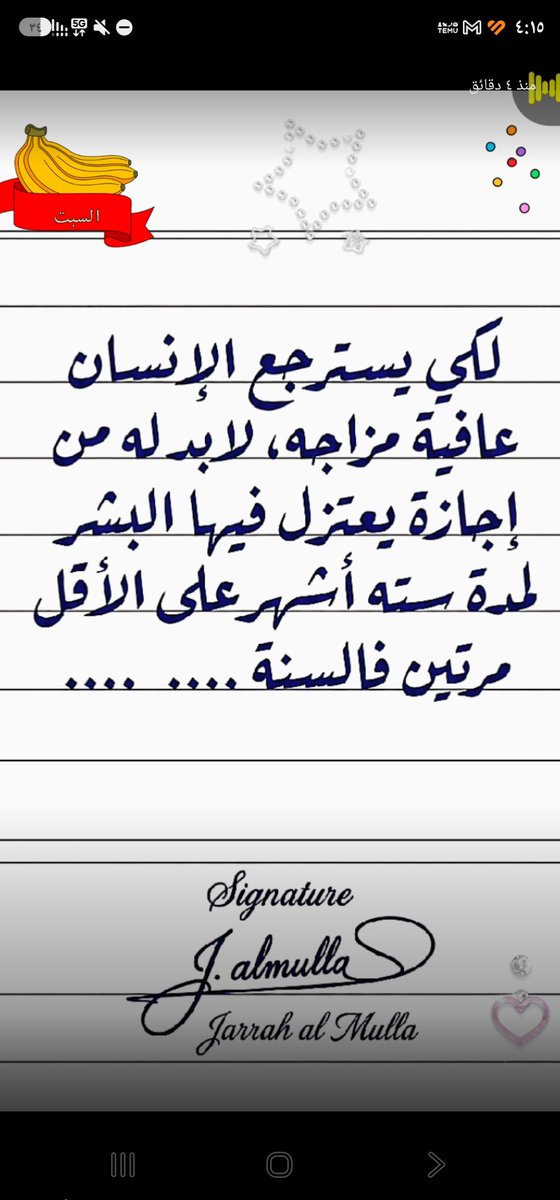 ٤:١٥
TEMU
5G
٣٤
منذ ٤ دقائق
السبت
لكي يسترجع الإنسان
عافية مزاجه، لابد له من
إجازة يعتزل فيها البشر
لمدة سته أشهر على الأقل
مرتين فالسنة .... ....
Signature
J. almulla
Jarrah al Mulla